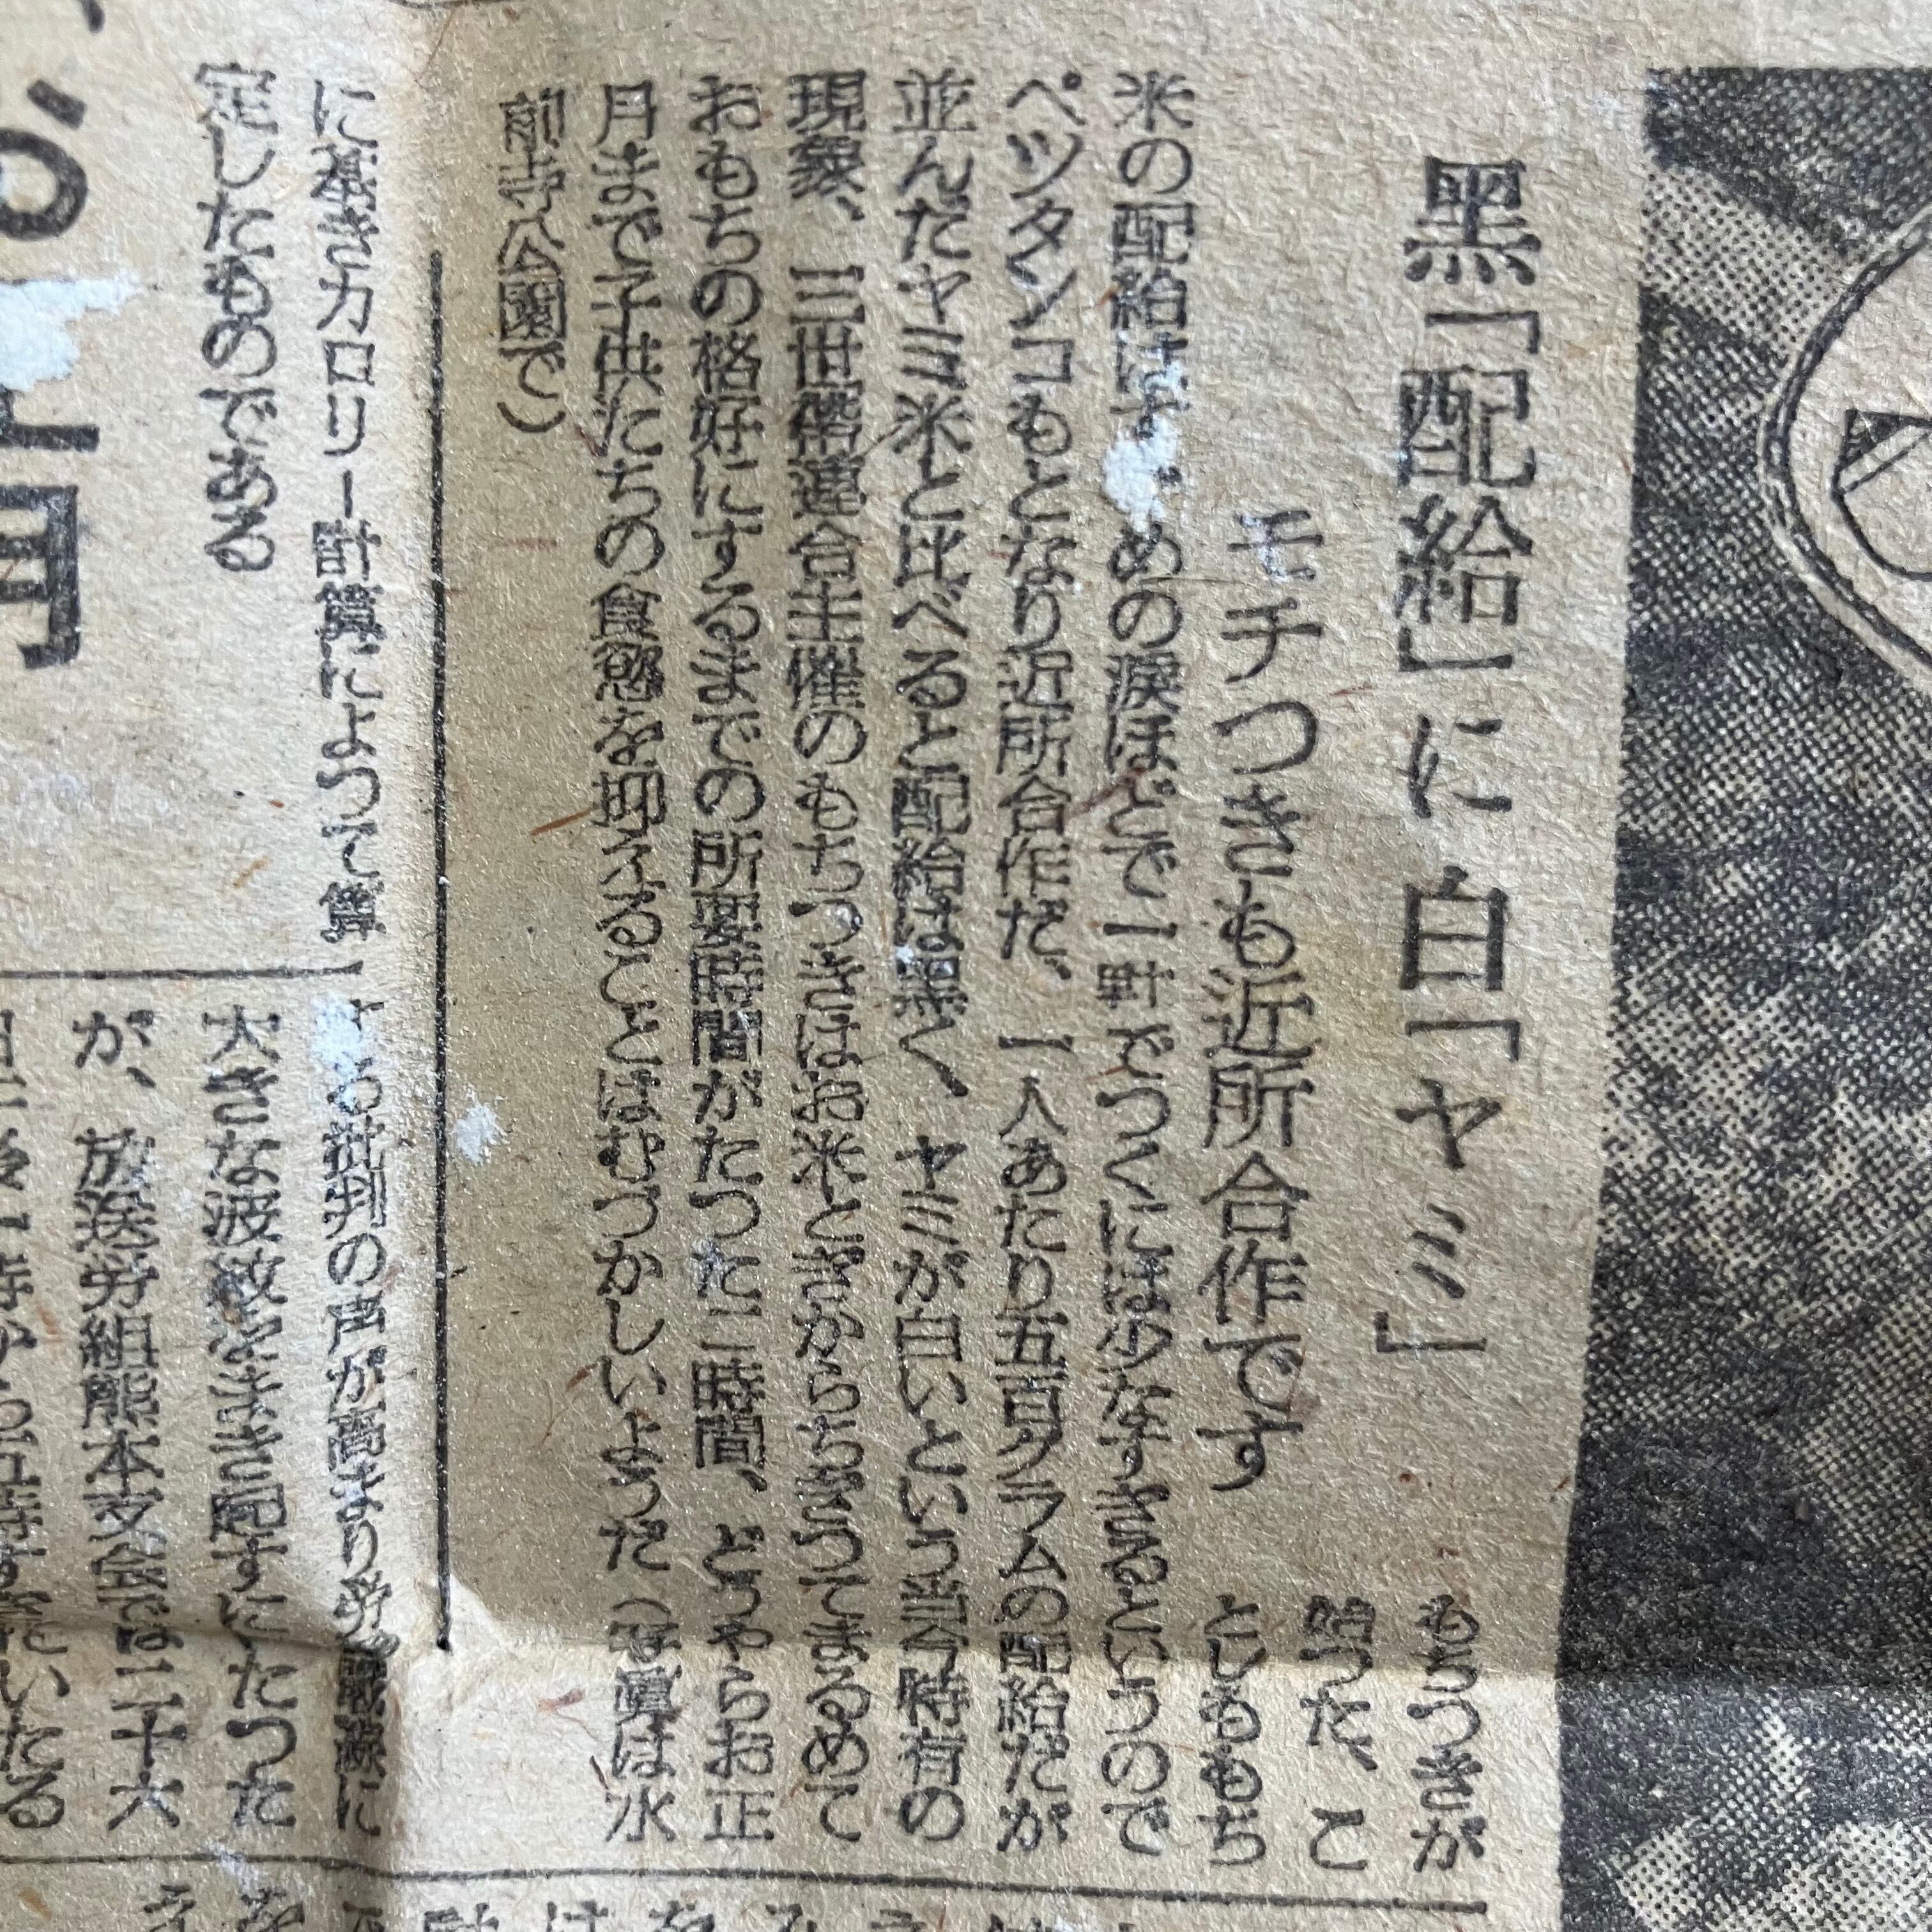 黑「配給」に白「ヤミ」
モチつきも近所合作です
もちつきが
始つた、こ
としももち
米の配給はすずめの涙ほどで一軒でつくには少なすぎるというので
ペツタンコもとなり近所合作だ、一人あたり五百グラムの配給だが
並んだヤミ米と比べると配給は黑く、ヤミが白いという当今特有の
現象、三世帶連合主催のもちつきはお米とぎからちぎつてまるめて
おもちの格好にするまでの所要時間がたつた二時間、どうやらお正
月まで子供たちの食慾を抑えることはむづかしいようだ（写眞は水
前寺公園で）
に基きカロリー計算によつて算
定したものである
る批判の声が高まり労働戰線に
大きな波紋をまき起すにいたつた
が、放送労組熊本支会では二十六